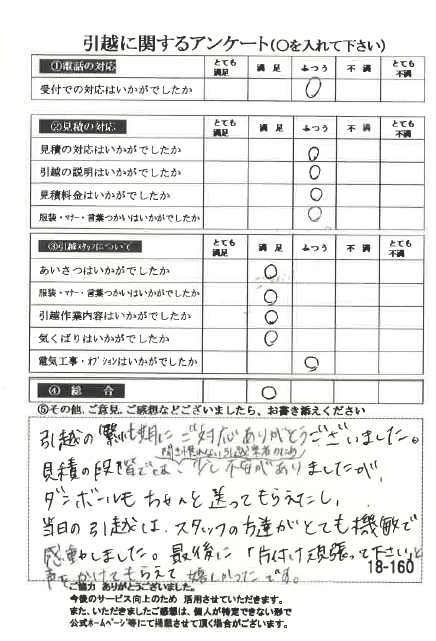 引越に関するアンケート(〇を入れて下さい)
①電話の対応 とても満足 満足 ふつう 不満 とても不満
受付での対応はいかがでしたか ○
②見積の対応 とても満足 満足 ふつう 不満 とても不満
見積の対応はいかがでしたか ○
引越の説明はいかがでしたか ○
見積料金はいかがでしたか ○
服装・マナー・言葉つかいはいかがでしたか ○
③引越スタッフについて とても満足 満足 ふつう 不満 とても不満
あいさつはいかがでしたか ○
服装・マナー・言葉つかいはいかがでしたか ○
引越作業内容はいかがでしたか ○
気くばりはいかがでしたか ○
電気工事・オプションはいかがでしたか ○
④ 総合 ○
⑤その他、ご意見、ご感想などございましたら、お書き添えください
引越の繁忙期にご対応ありがとうございました。
聞き慣れない引越業者のため
見積の段階では、少し不安がありましたが、
ダンボールもちゃんと送ってもらえたし、
当日の引越は、スタッフの方達がとても機敏で
感動しました。最後に「片付け頑張って下さい」と
声をかけてもらえて嬉しかったです。
18-160
ご協力 ありがとうございました。
今後のサービス向上のため 活用させていただきます。
また、いただきましたご感想は、個人が特定できない形で
公式ホームページ等にて掲載させて頂く場合がございます。